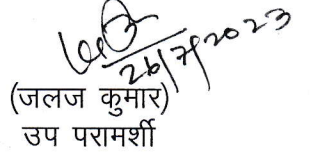 26/7/2023
(जलज कुमार)
उप परामर्शी